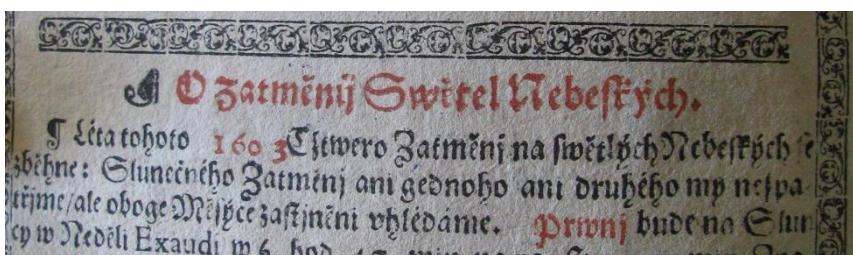 O Zatměnij Swětel Nebeſkých.
¶ Léta tohoto 1603 Cžtwero Zatměnj na ſwětlých Nebeſkých ſe
zběhne: Slunečného Zatměnj ani gednoho ani druhého my neſpa-
třjme/ ale oboge Měſýce zaſtjněni vhlédáme. Prwnj bude na Slun
cy w Neděli Exaudi w 6 hod